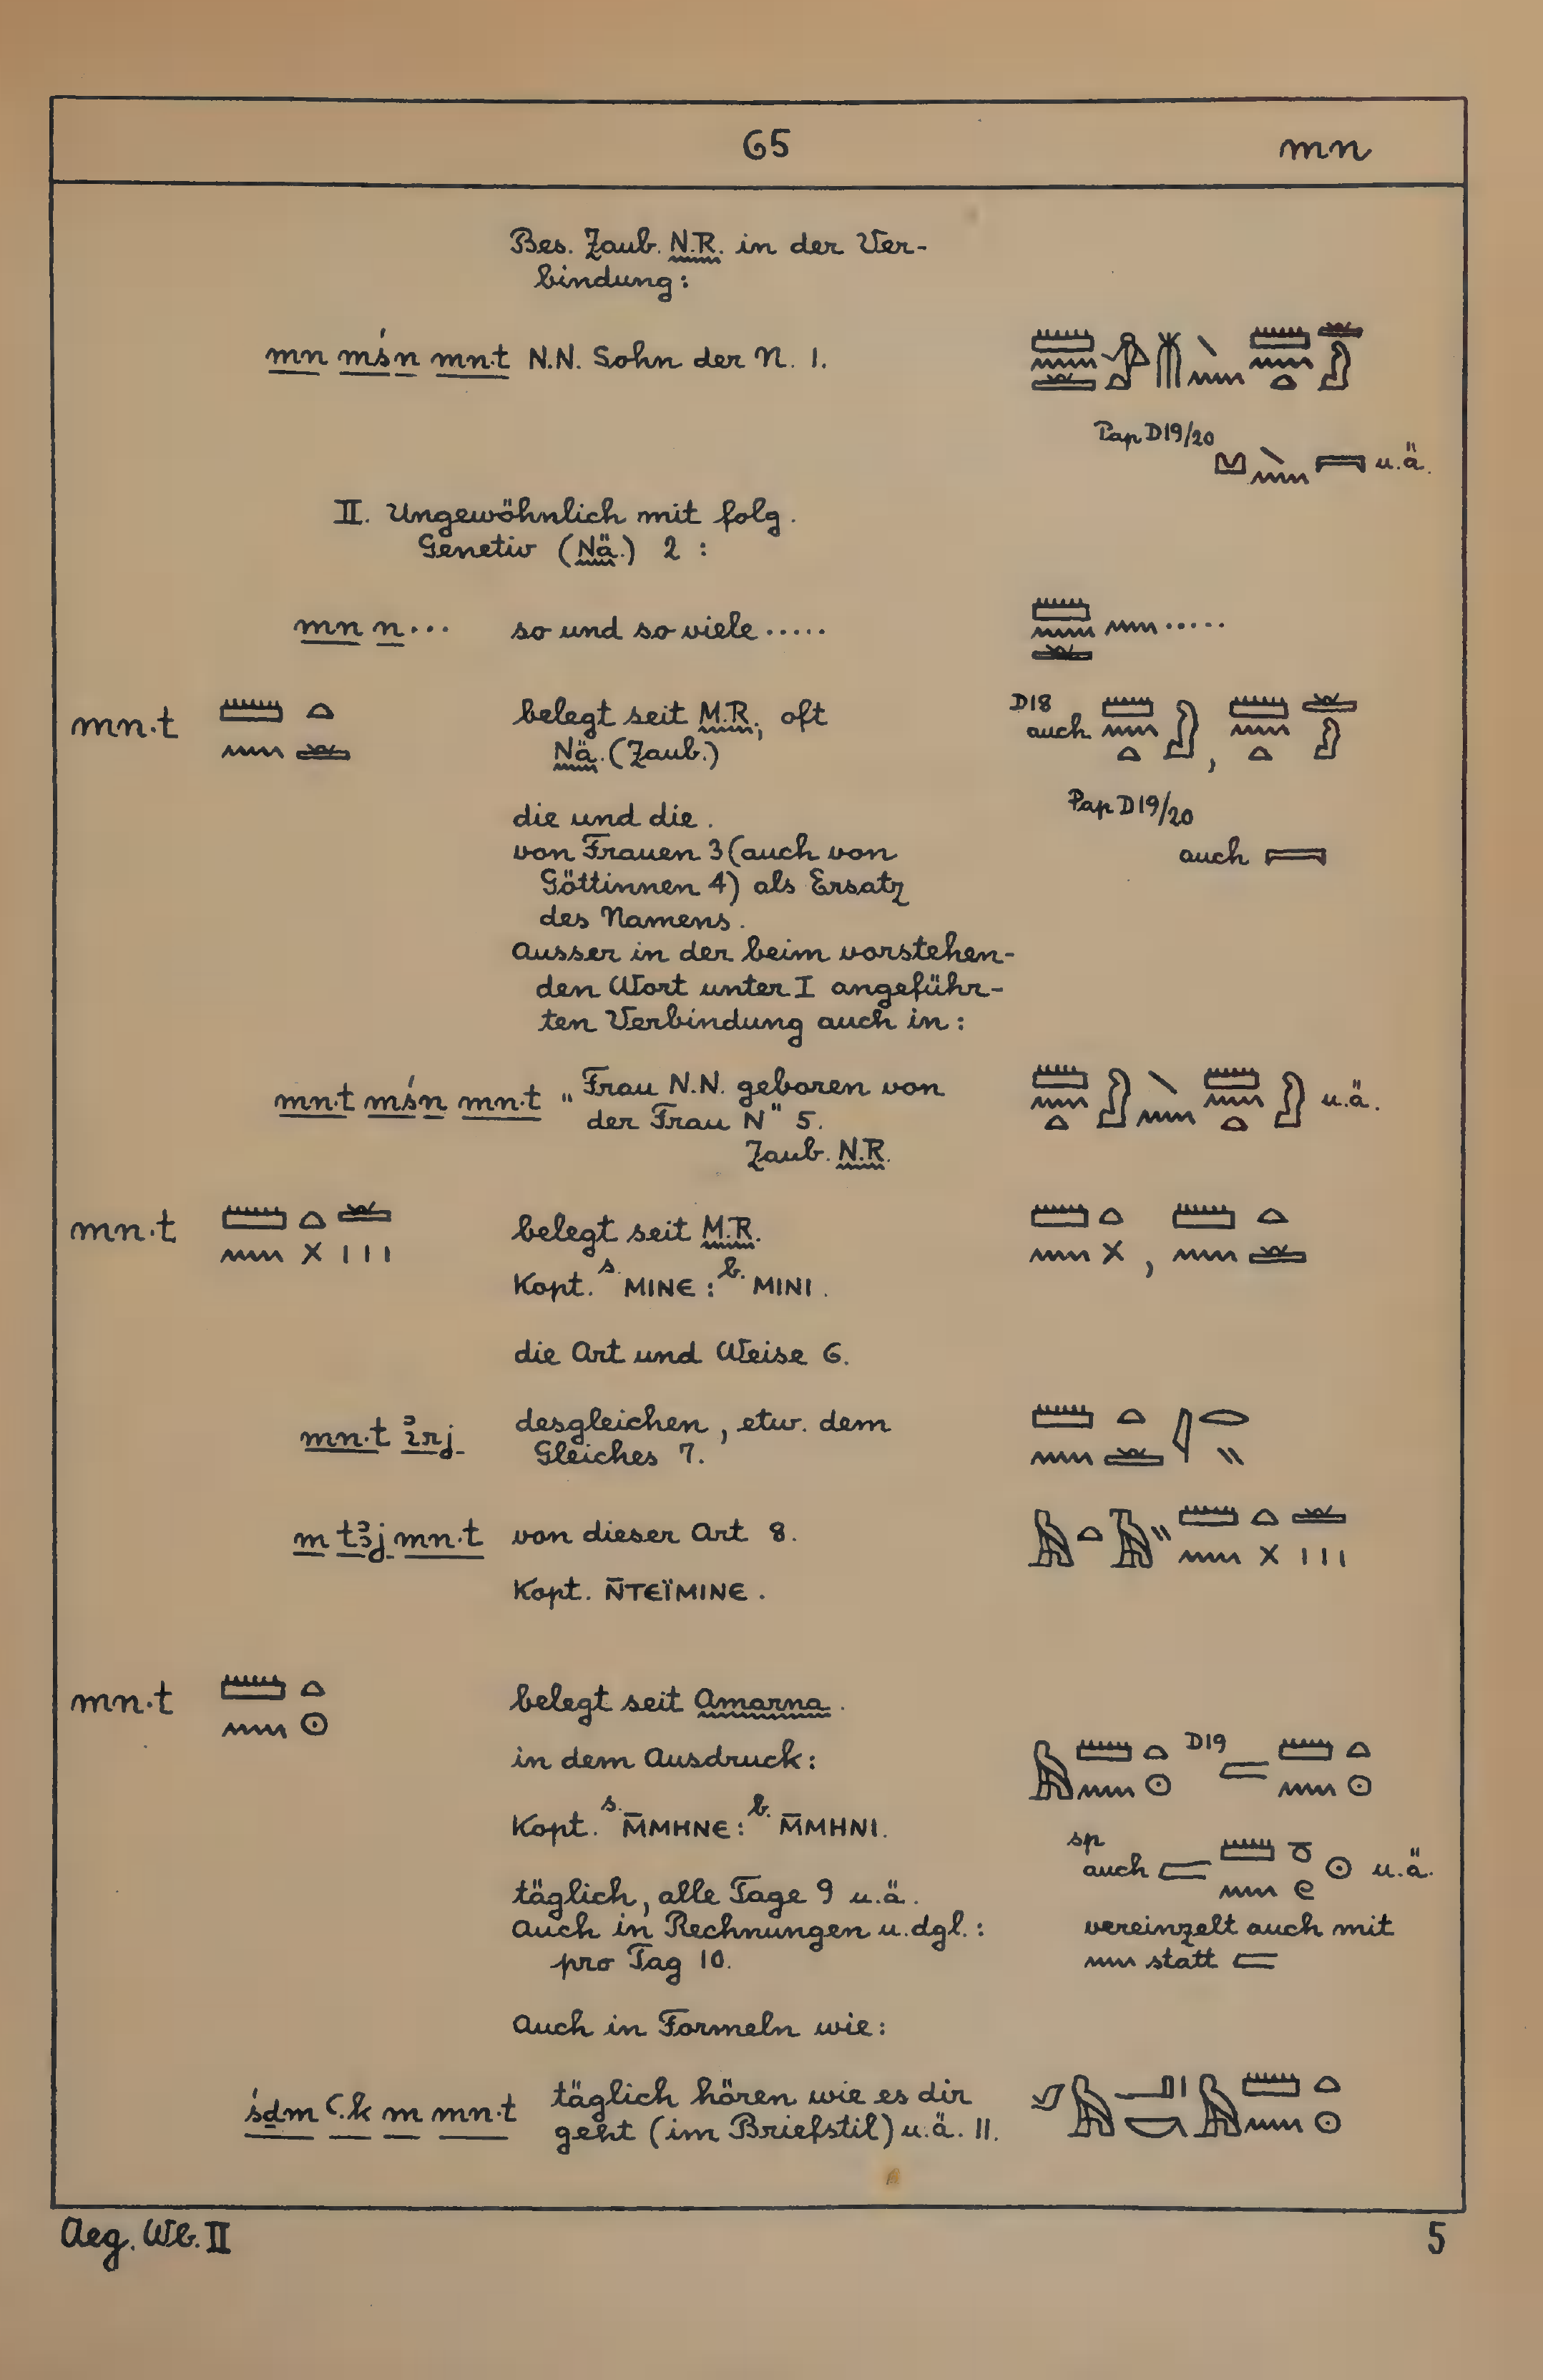 65 mn
Bes. Zaub. N.R. in der Ver-
bindung:
mn mśn mn.t N.N. Sohn der N. 1.
Pap D19/20
u.ä.
II. Ungewöhnlich mit folg.
Genetiv (Nä.) 2 :
mn n... so und so viele .....
mn.t belegt seit M.R., oft D18
Nä. (Zaub.) auch
die und die. Pap D19/20
von Frauen 3 (auch von auch
Göttinnen 4) als Ersatz
des Namens.
Ausser in der beim vorstehen-
den Wort unter I angeführ-
ten Verbindung auch in:
mn.t mśn mn.t „Frau N.N. geboren von u.ä.
der Frau N" 5.
Zaub. N.R.
mn.t belegt seit M.R.
Kopt. s. ⲘⲒⲚⲈ : b. ⲘⲒⲚⲒ.
die Art und Weise 6.
mn.t ỉrj desgleichen, etw. dem
Gleiches 7.
m tꜣj mn.t von dieser Art 8.
Kopt. Ⲛ̄ⲦⲈⲒ̈ⲘⲒⲚⲈ.
mn.t belegt seit Amarna.
in dem Ausdruck: D19
Kopt. s. Ⲙ̄ⲘⲎⲚⲈ : b. Ⲙ̄ⲘⲎⲚⲒ.
sp
auch u.ä.
täglich, alle Tage 9 u.ä.
auch in Rechnungen u.dgl.: vereinzelt auch mit
pro Tag 10. statt
Auch in Formeln wie:
śḏm ꜥ.k m mn.t täglich hören wie es dir
geht (im Briefstil) u.ä. 11.
Aeg. Wb. II 5